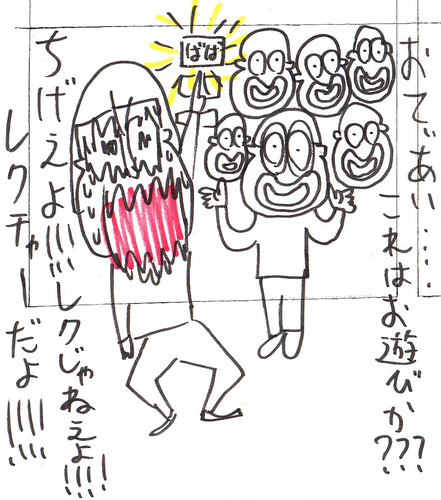 おてであい……
これはお遊びか???
ばば
ちげえよ!!!!レクじゃねえよ!!!!
レクチャーだよ!!!!!